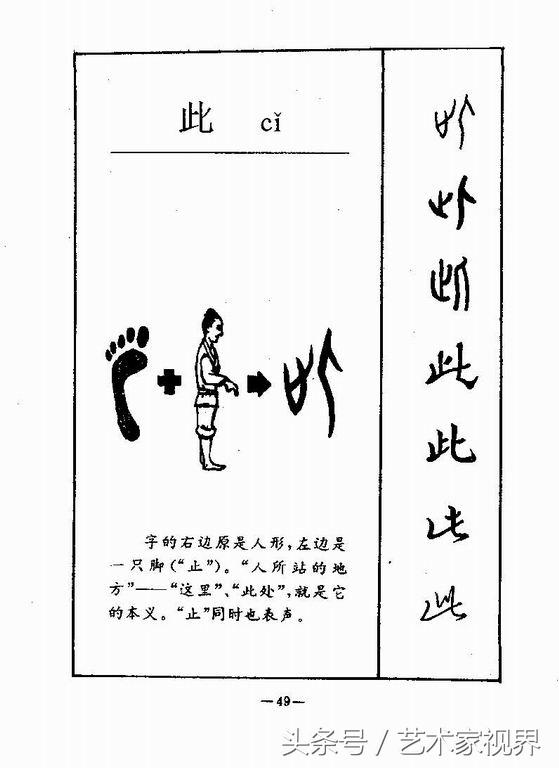 此 cǐ
字的右边原是人形，左边是
一只脚（“止”）。“人所站的地
方”——“这里”、“此处”，就是它
的本义。“止”同时也表声。
此
此
—49—
头条号/艺术家视界